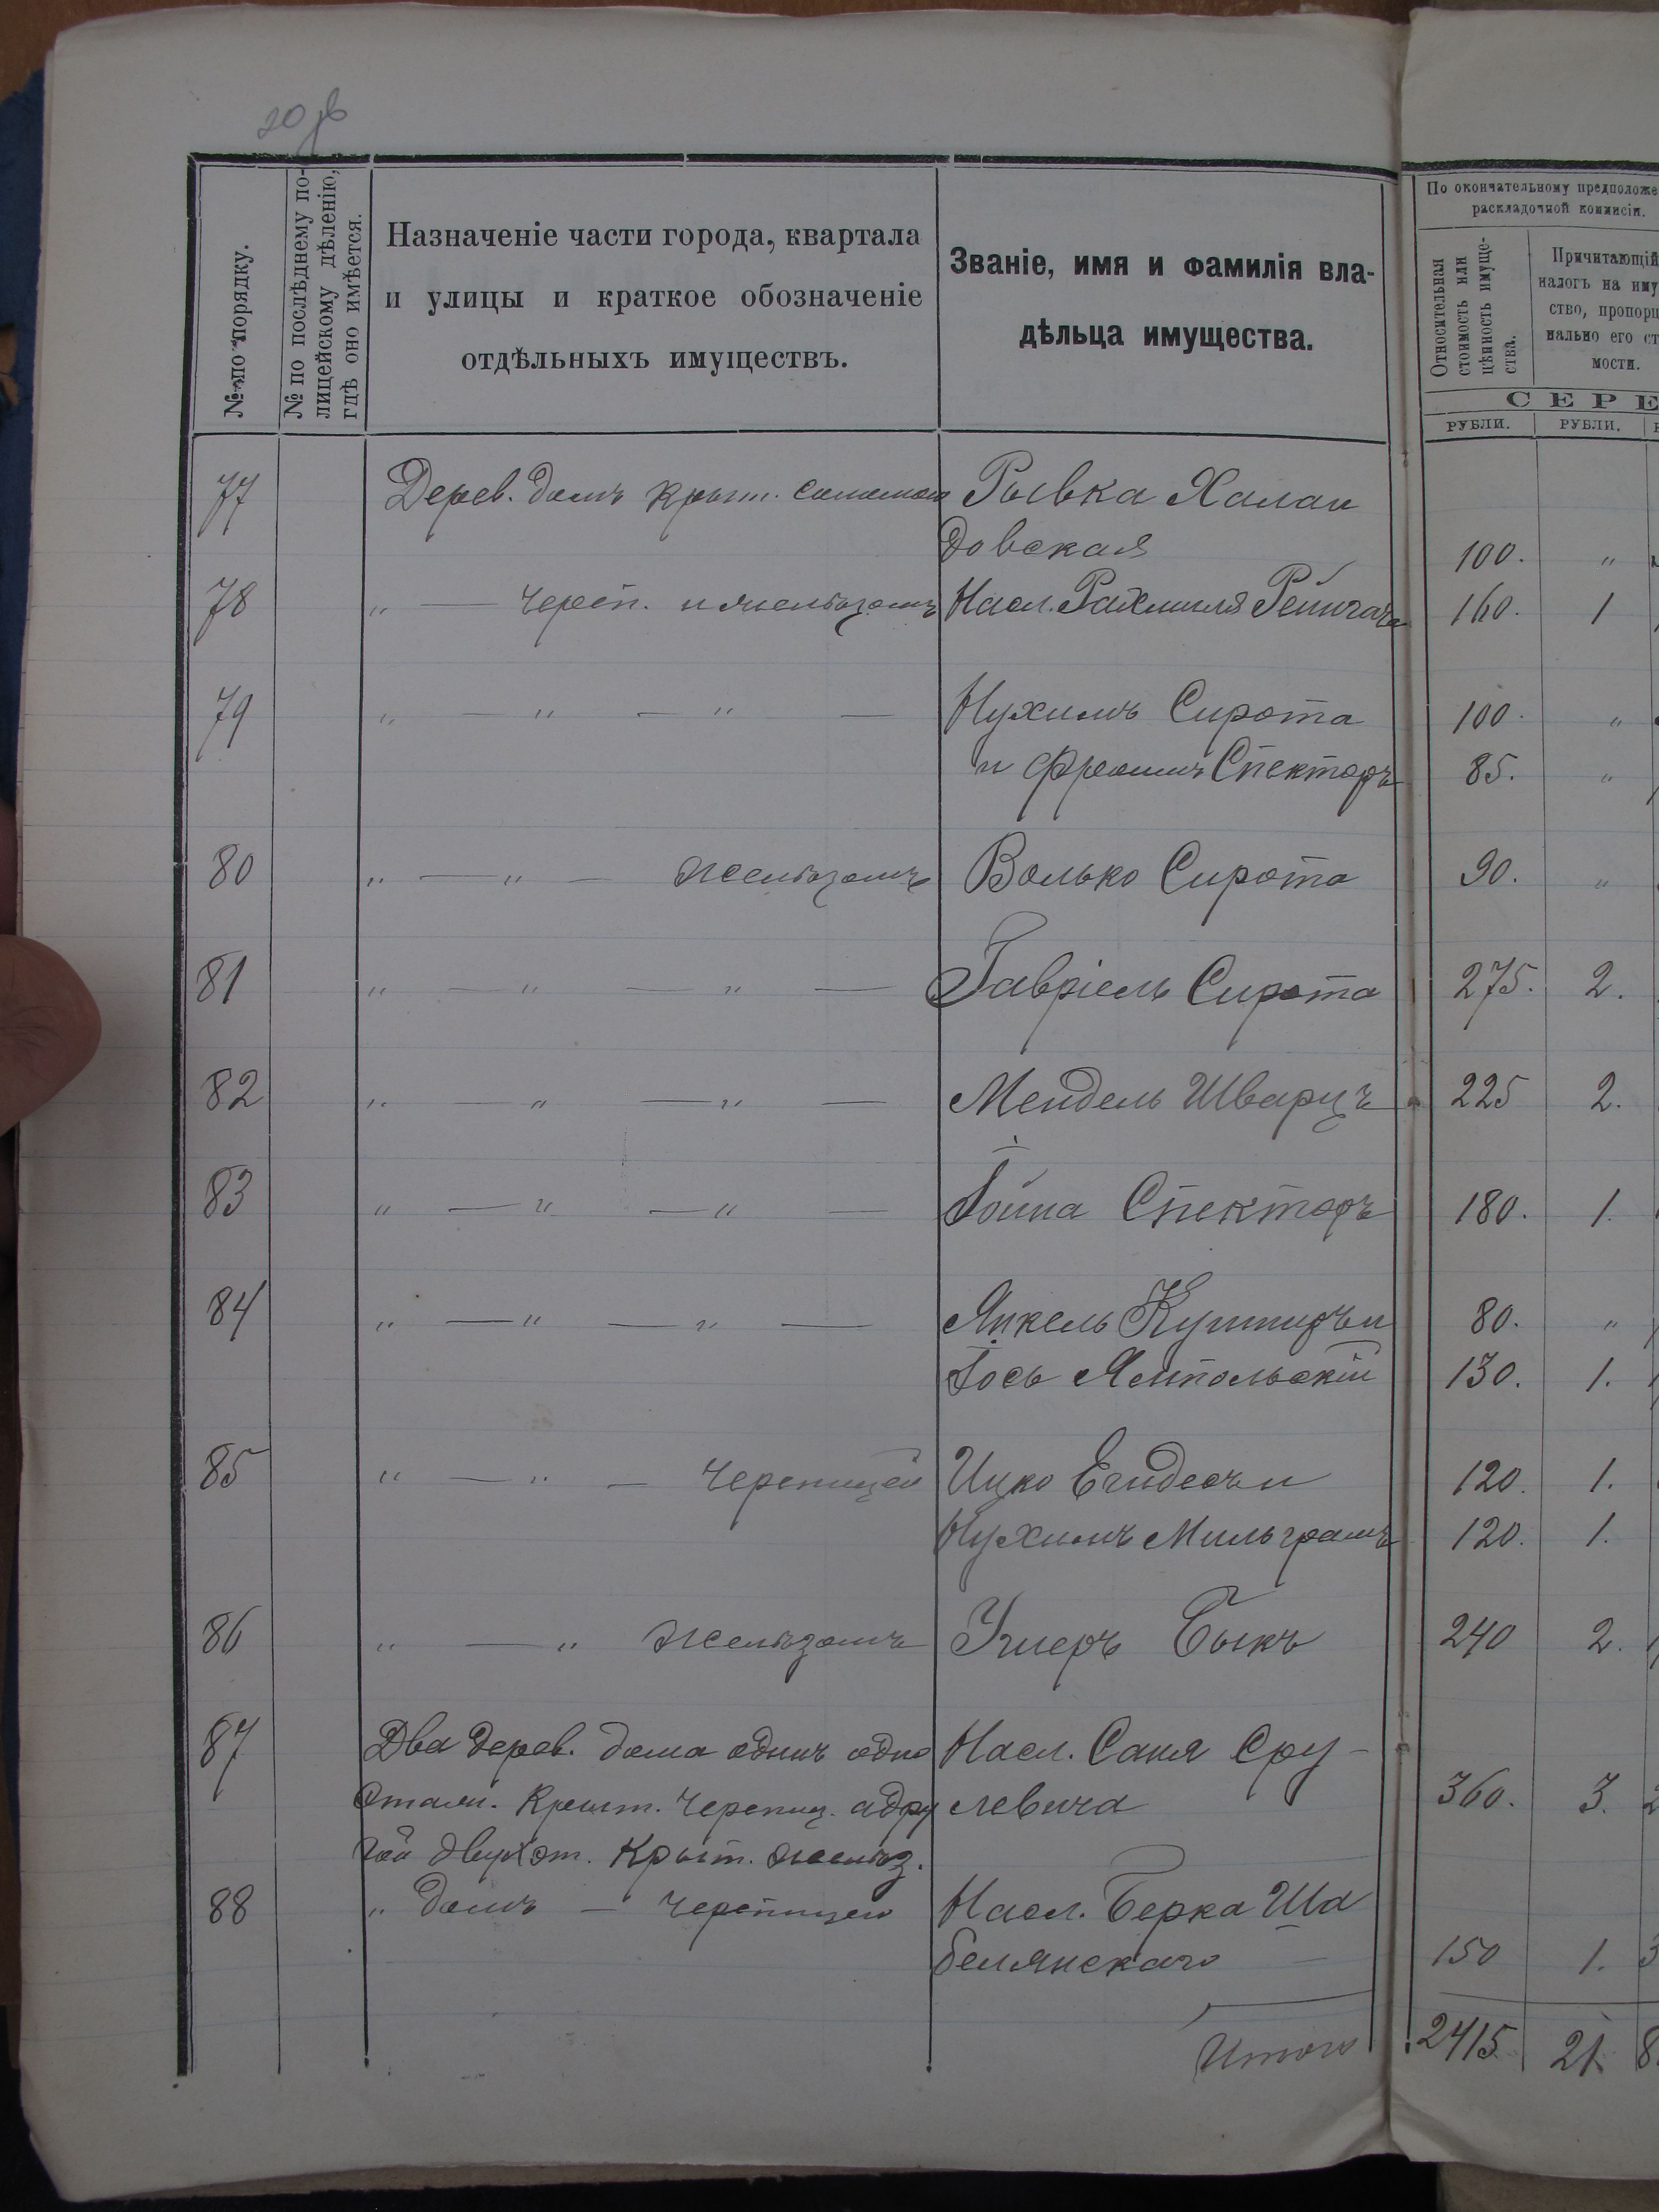 № по порядку.
№ по послѣднему по-
лицейскому дѣленію,
гдѣ оно имѣется.
Назначеніе части города, квартала
и улицы и краткое обозначеніе
отдѣльныхъ имуществъ.
Званіе, имя и фамилія вла-
дѣльца имущества.
По окончательному предположе
раскладочной коммисіи.
Относительная
стоимость или
цѣнность имуще-
ства.
Причитающій
налогъ на иму
ство, пропорц
нально его ст
мости.
СЕРЕ
РУБЛИ.
РУБЛИ.
77 Дерев. домъ крыт. соломою Рывка Халаи
довская 100. "
78 " — Череп. и желѣзомъ Насл. Рахмиля 160. 1
79 " — " — " — Нухимъ Сирота 100. "
и Фроимъ Спекторъ 85. "
80 " — " — желѣзомъ Волько Сирота 90. "
81 " — " — " — Гавріель Сирота 275. 2.
82 " — " — " — Мендель Шварцъ 225 2.
83 " — " — " — Іойна Спекторъ 180. 1.
84 " — " — " — Янкель Кушниръ и 80. "
Іось Ямпольскій 130. 1.
85 " — " — Черепицей Ицко Егидесъ и 120. 1.
Нухимъ Мильграмъ 120. 1.
86 " — " желѣзомъ Умеръ Быкъ 240 2.
87 Два дерев. дома одинъ одно Насл. Саня Сру-
этажн. крыт. черепиц. а дру левича 360. 3. 2
гой двухэт. крыт. желѣз.
88 " домъ — черепицею Насл. Берка Ша
белянскаго 150 1. 3
Итого 2415 21. 8